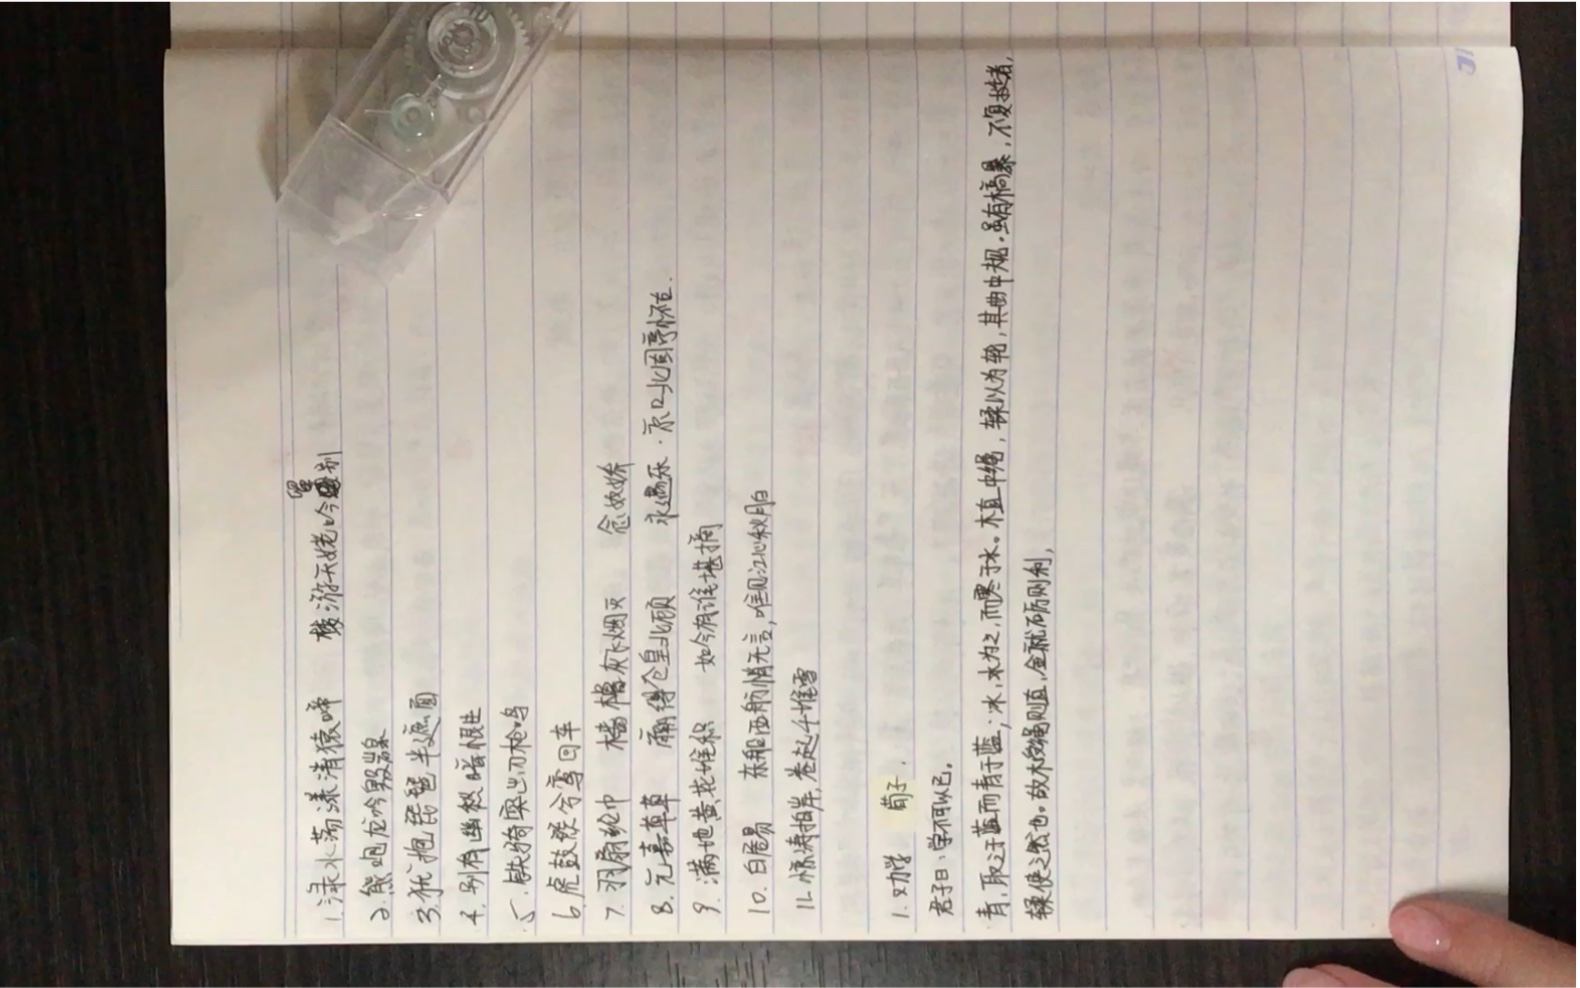 1. 渌水荡漾清猿啼 梦游天姥吟留别
2. 熊咆龙吟殷岩泉
3. 犹抱琵琶半遮面
4. 别有幽愁暗恨生
5. 铁骑突出刀枪鸣
6. 虎鼓瑟兮鸾回车
7. 羽扇纶巾 樯橹灰飞烟灭 念奴娇
8. 元嘉草草 赢得仓皇北顾 永遇乐·京口北固亭怀古.
9. 满地黄花堆积 如今有谁堪摘
10. 白居易 东船西舫悄无言,唯见江心秋月白
11. 惊涛拍岸,卷起千堆雪
1. 劝学 荀子.
君子曰:学不可以已。
青,取之于蓝而青于蓝;冰,水为之,而寒于水。木直中绳,𫐓以为轮,其曲中规。虽有槁暴,不复挺者,
𫐓使之然也。故木受绳则直,金就砺则利,